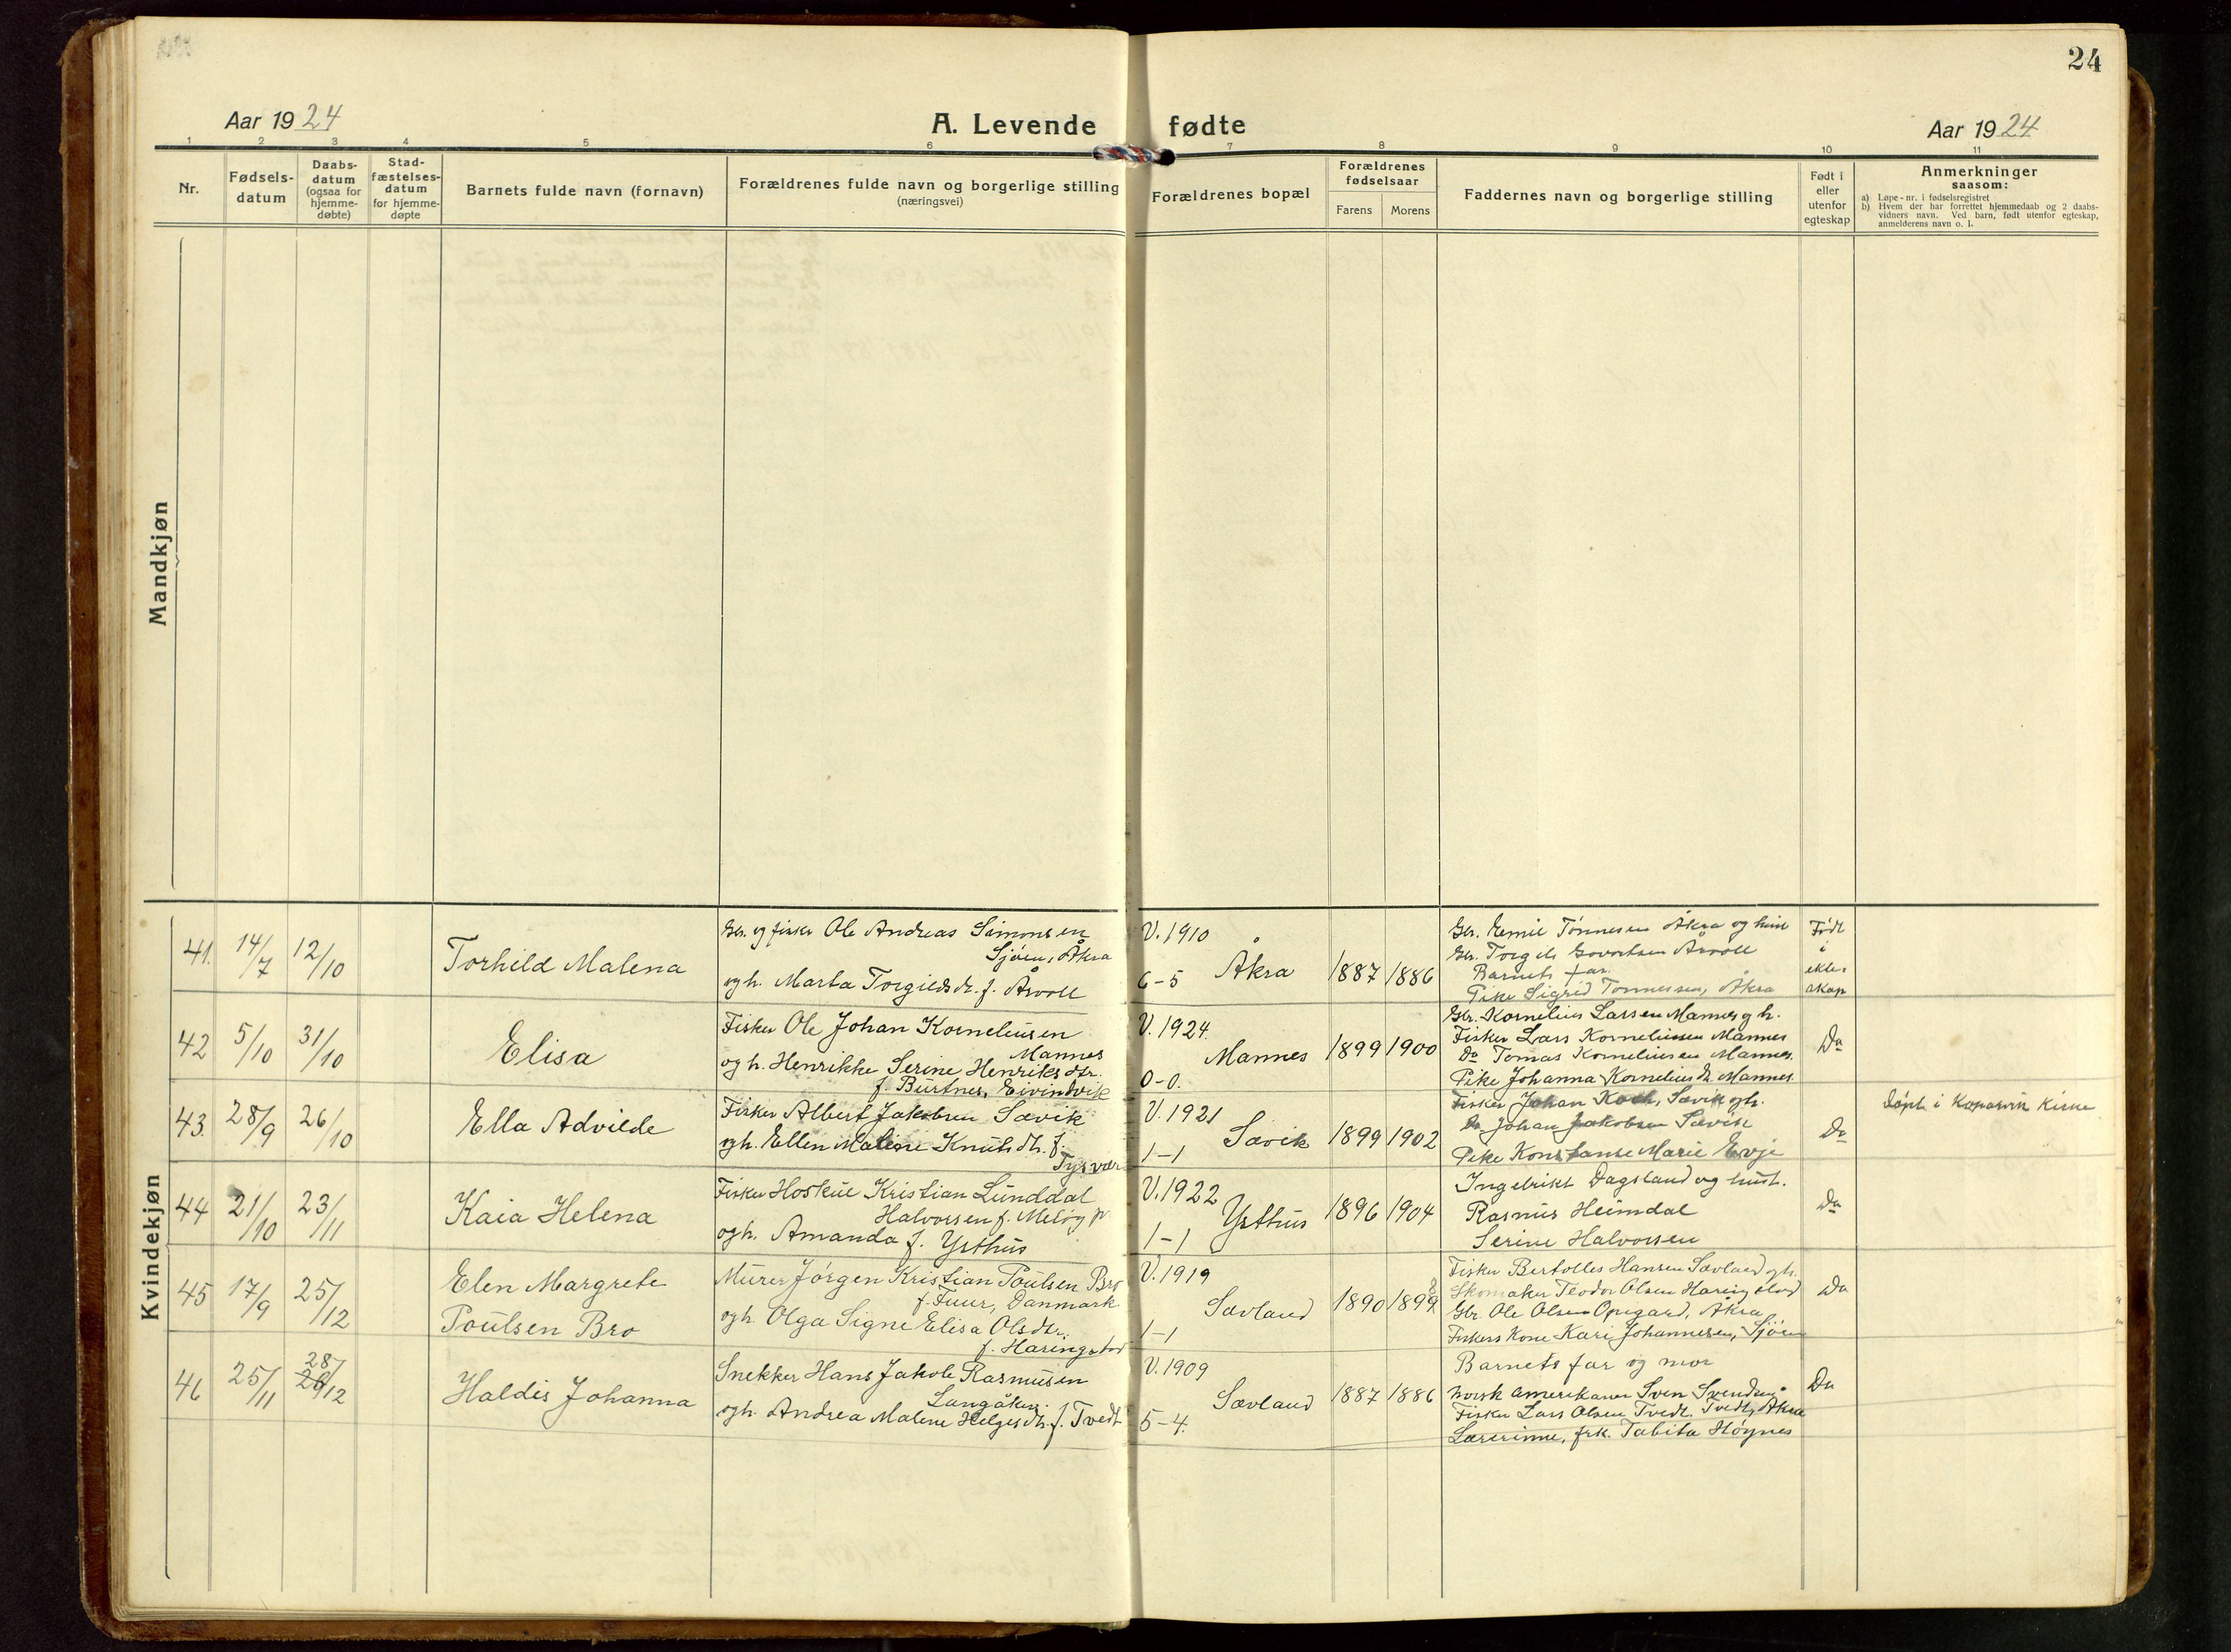 24
Aar 1924
A. Levende fødte
Aar 1924
1 2 3 4 5 6 7 8 9 10 11
Nr.
Fødsels-
datum
Daabs-
datum
(ogsaa for
hjemme-
døbte)
Stad-
fæstelses-
datum
for hjemme-
døpte
Barnets fulde navn (fornavn)
Forældrenes fulde navn og borgerlige stilling
(næringsvei)
Forældrenes bopæl
Forældrenes
fødselsaar
Farens
Morens
Faddernes navn og borgerlige stilling
Født i
eller
utenfor
egteskap
Anmerkninger
saasom:
a) Løpe-nr. i fødselsregistret
b) Hvem der har forrettet hjemmedaab og 2 daabs-
vidners navn. Ved barn, født utenfor egteskap,
anmelderens navn o. l.
Mandkjøn
Kvindekjøn
41. 14/7 12/10
Torhild Malena
Gbr. og fisker Ole Andreas Simonsen
Sjøen, Åkra
og h. Marta Torgilds dr. f. Årvoll
V. 1910
6-5 Åkra
1887 1886
Gbr. Emil Tønnesen Åkra og hust
Gbr. Torgils Govertsen Årvoll
Barnets far.
Pike Sigrid Tønnessen, Åkra
Født
i
ekte-
skap
42 5/10 31/10
Elisa
Fisker Ole Johan Korneliusen
Mannes
og h. Henrikke Serine Henriks dtr.
f. Burtnes, Eivindvik
V. 1924.
Mannes
0-0.
1899 1900
Gbr. Kornelius Larsen Mannes og h.
Fisker Lars Korneliussen Mannes
Do Tomas Korneliusen Mannes.
Pike Johanna Kornelius dr. Mannes.
Do
43. 28/9 26/10
Ella Advilde
Fisker Albert Jakobsen Sævik
og h. Ellen Malene Knuts dtr. f.
Tysvær
V. 1921
Sævik
1-1
1899 1902
Fisker Johan Koch, Sævik og h.
Do Johan Jakobsen Sævik
Pike Konstanse Marie Evje
Do
Døpt i Kopervik Kirke
44 21/10 23/11
Kaia Helena
Fisker Hoskul Kristian Lunddal
Halvorsen f. Meløy p.
og h. Amanda f. Ysthus
V. 1922
Ysthus
1-1
1896 1904
Ingebrikt Dagsland og hust.
Rasmus Heimdal
Serine Halvorsen
Do
45 17/9 25/12
Elen Margrete
Poulsen Bro
Murer Jørgen Kristian Poulsen Bro
f. Fuur, Danmark
og h. Olga Signe Elisa Olsdtr.
f. Haringstad
V. 1919
Sævland
1-1
1890 1899
Fisker Bertolles Hansen Sævland og h.
Skomaker Teodor Olsen Haringstad
Gbr. Ole Olsen Opegard, Åkra
Fiskers Kone Kari Johannesen, Sjøen
Do
46 25/11 28/12
Haldis Johanna
Snekker Hans Jakob Rasmusen
Langåker.
og h. Andrea Malene Helges dtr. f. Tvedt
V. 1909
Sævland
5-4.
1887 1886
Barnets far og mor
Norsk amerikaner Sven Svendsen
Fisker Lars Olsen Tvedt, Tvedt, Åkra
Lærerinne, frk. Tabita Høynes
Do